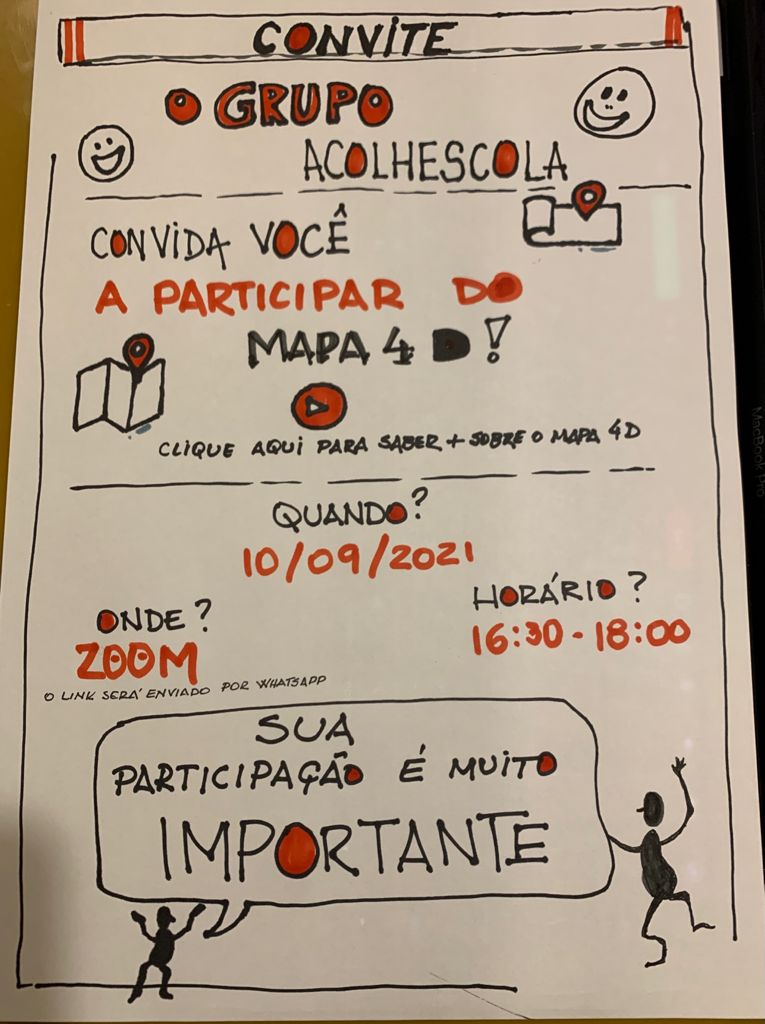 CONVITE
O GRUPO
ACOLHESCOLA
CONVIDA VOCÊ
A PARTICIPAR DO
MAPA 4 D!
CLIQUE AQUI PARA SABER + SOBRE O MAPA 4D
QUANDO?
10/09/2021
ONDE?
ZOOM
O LINK SERÁ ENVIADO POR WHATSAPP
HORÁRIO?
16:30 - 18:00
SUA
PARTICIPAÇÃO É MUITO
IMPORTANTE
MacBook Pro